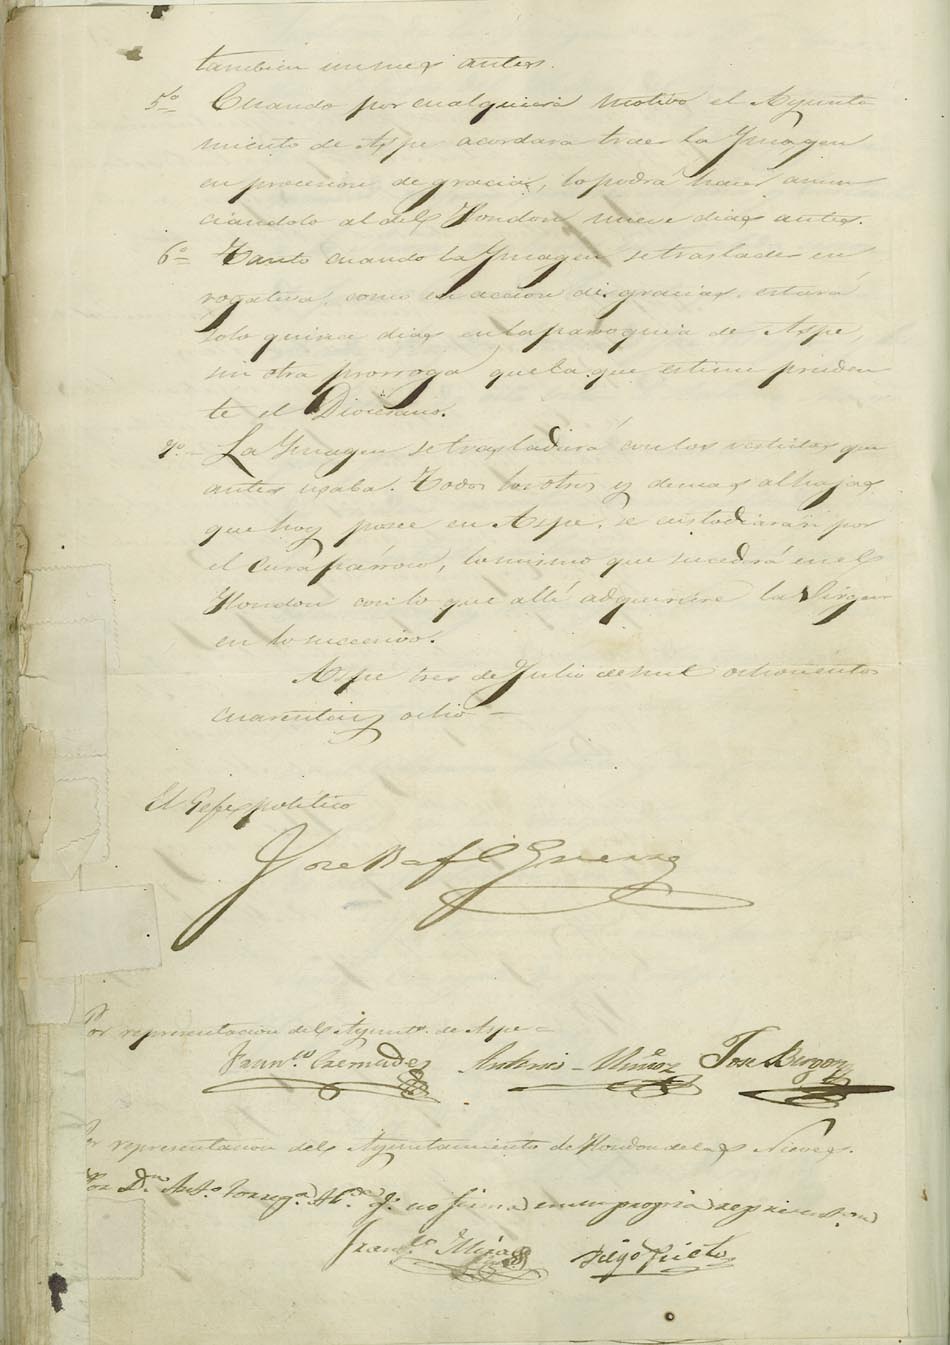 tambien un mes antes.
5º Cuando por cualquiera motivo el Ayunta
miento de Aspe acordara traer la Ymagen
en procesion de gracias, lo podrá hacer anun
ciandolo al del Hondon nueve dias antes.
6º Tanto cuando la Ymagen se traslade en
rogativa, como en accion de gracias, estará
solo quince dias en la parroquia de Aspe,
sin otra prorroga que la que estime pruden
te el Diocesano.
7º La Ymagen se trasladará con los vestidos que
antes usaba. Todos los otros y demas alhajas
que hoy posee en Aspe, se custodiarán por
el Cura párroco, lo mismo que sucedrá en el
Hondon con lo que allí adquiriere la Virgen
en lo succesivo.
Aspe tres de Julio de mil ochocientos
cuarenta y ocho
El Gefe político
Jose Rafael Guerra
Por representacion del Ayuntº. de Aspe =
Franco. Cremades Antonio Muñoz Jose Berger
Por representacion del Ayuntamiento de Hondon de las Nieves.
Por Dn. Anto. no firma en su propria representon
Franco. Mira Diego Prieto